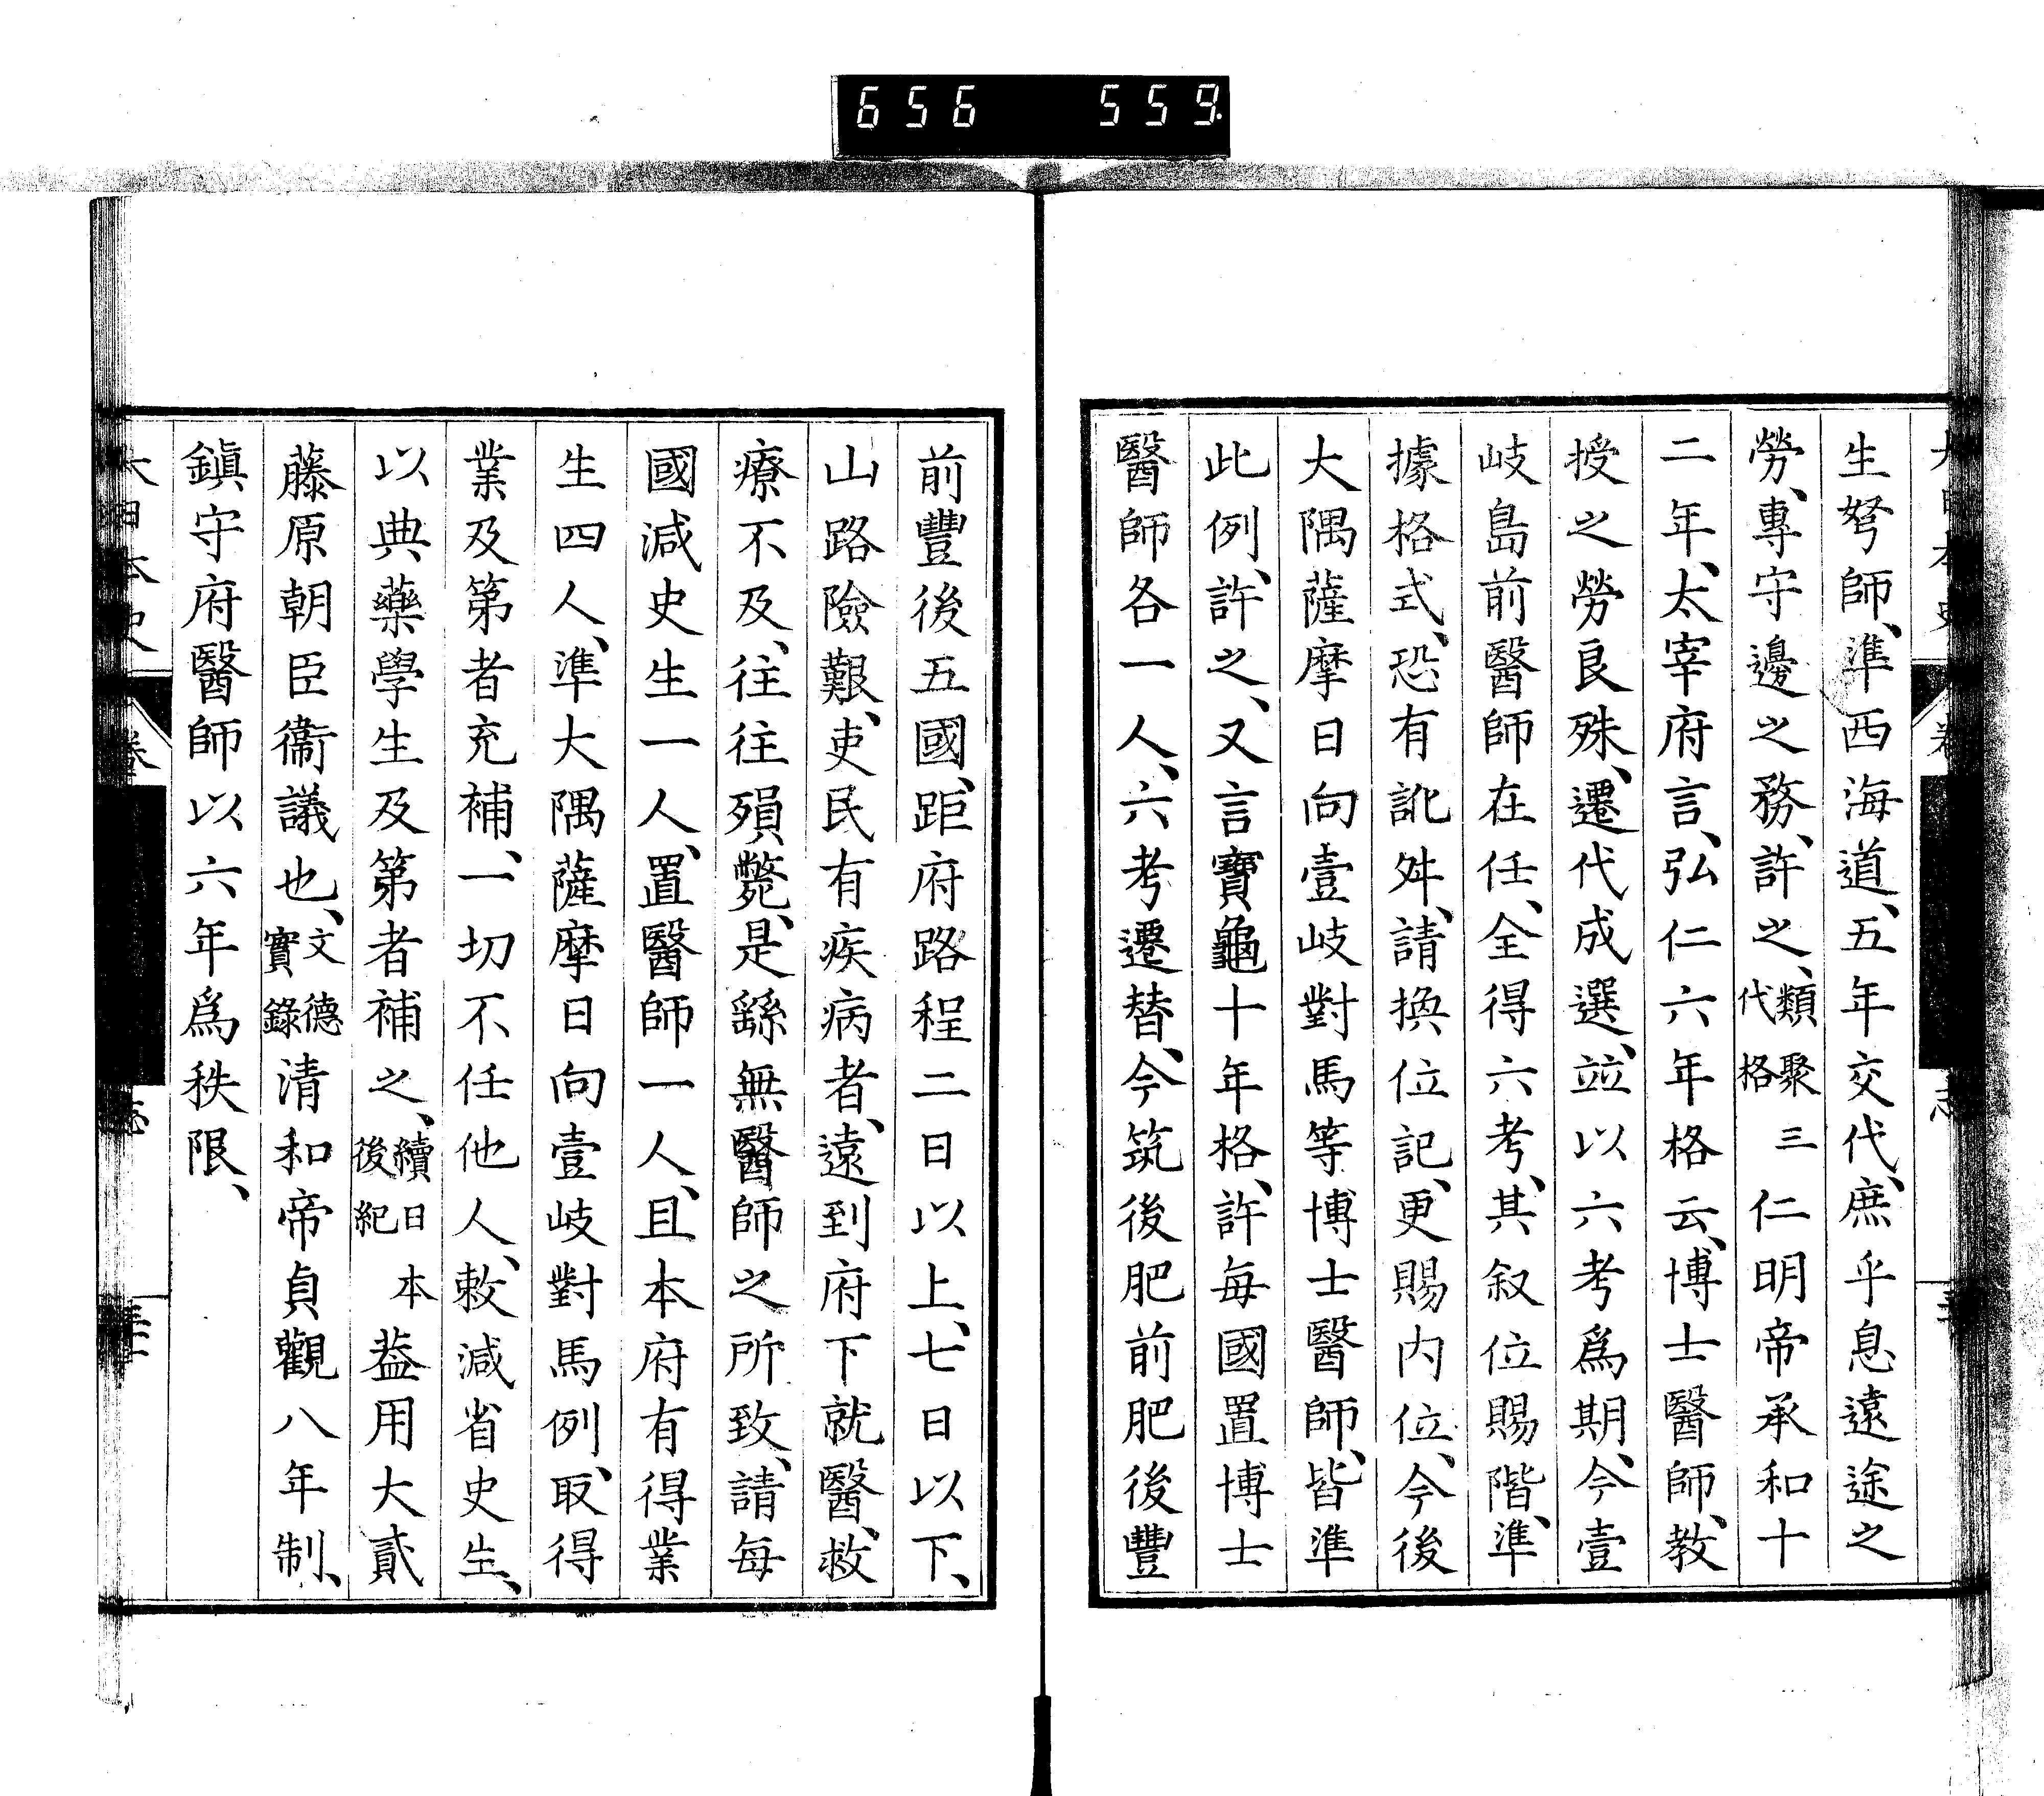 656 559
生弩師、準西海道、五年交代、庶乎息遠途之
勞、專守邊之務、許之、類聚三代格仁明帝承和十
二年、太宰府言、弘仁六年格云、博士醫師、教
授之勞良殊、遷代成選、竝以六考爲期、今壹
岐島前醫師在任、全得六考、其叙位賜階、準
據格式、恐有訛舛、請換位記、更賜内位、今後
大隅薩摩日向壹岐對馬等博士醫師、皆準
此例、許之、又言寶龜十年格、許每國置博士
醫師各一人、六考遷替、今筑後肥前肥後豐
前豐後五國、距府路程二日以上、七日以下、
山路險艱、吏民有疾病者、遠到府下就醫、救
療不及、往往殞斃、是繇無醫師之所致、請每
國減史生一人、置醫師一人、且本府有得業
生四人、準大隅薩摩日向壹岐對馬例、取得
業及第者充補、一切不任他人、敕減省史生、
以典藥學生及第者補之、續日本後紀葢用大貳
藤原朝臣衞議也、文德實錄清和帝貞觀八年制、
鎭守府醫師以六年爲秩限、
大日本史